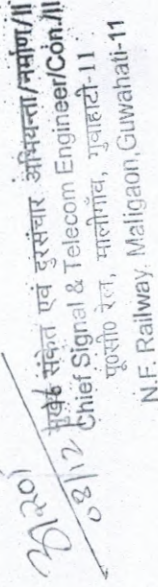 मुख्य संकेत एवं दूरसंचार अभियन्ता/नर्माण/II
Chief Signal & Telecom Engineer/Con./II
पू०सी० रेल, मालीगाँव, गुवाहाटी-11
N.F. Railway, Maligaon, Guwahati-11